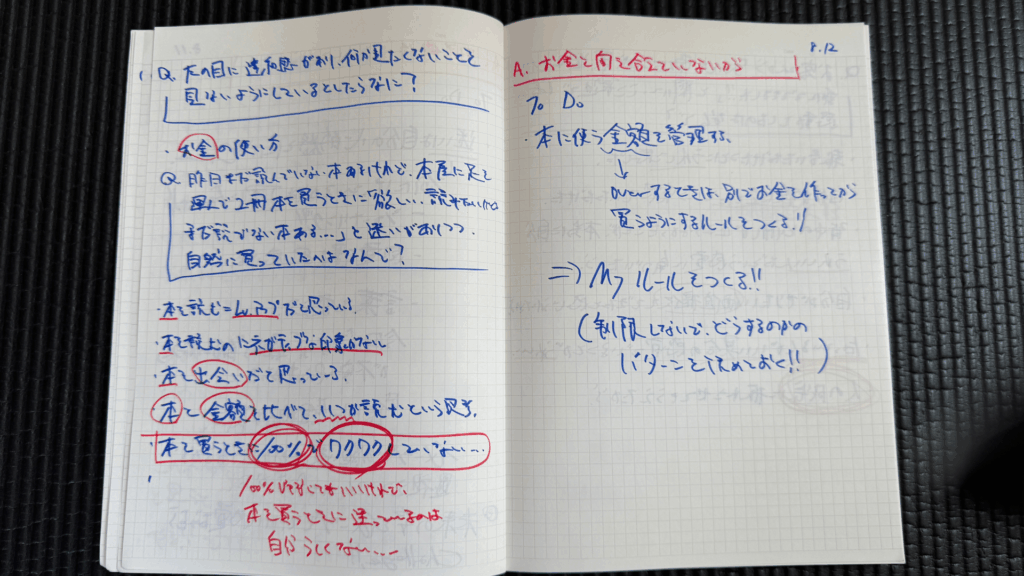 Q. 左の目に違和感があり、何か見たくないことを
見ないようにしているとしたらなに？
・お金の使い方
Q. 昨日まだ読んでいない本あるけれど、本屋に足を
運んで2冊本を買うときに「欲しい、読みたいけど
まだ読んでない本ある…」と迷いがありつつ
自然に買っていたのはなんで？
・本を読む＝Lv.アップだと思っている。
・本を読む上のにネガティブな印象がない
・本を出会いだと思っている。
・本と金額を比べて、いつか読むという思考。
・本を買うときに100%でワクワクしていない…
100%じゃなくてもいいけれど、
本を買うときに迷っているのは
自分らしくない…
8.12
A. お金と向き合えていないから
To Do
・本に使う金額を管理する。
↓
overするときは別でお金を作ってから
買うようにするルールをつくる!!
⇒ My ルールをつくる!!
(制限しないで、どうするのかの
パターンを決めておく!!)